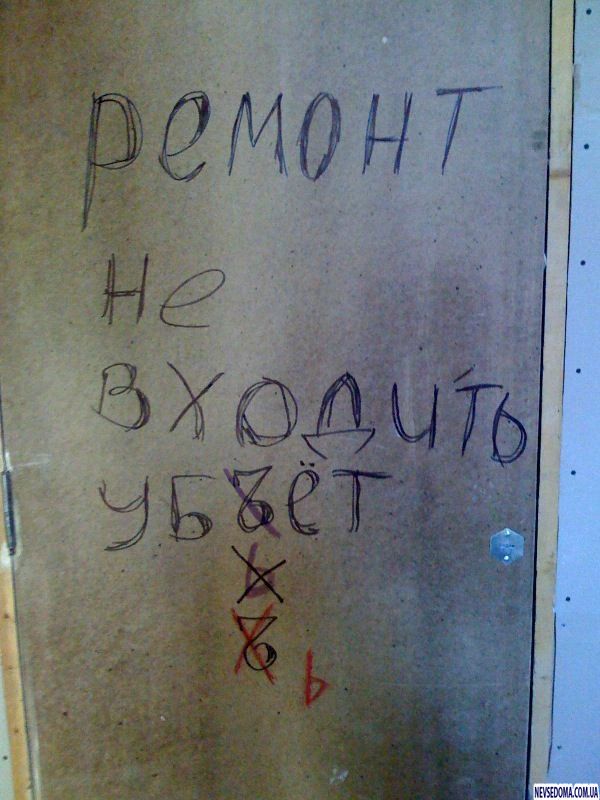 ремонт
не
входить
убъёт
ь
ъ
ь
NEVSEDOMA.COM.UA